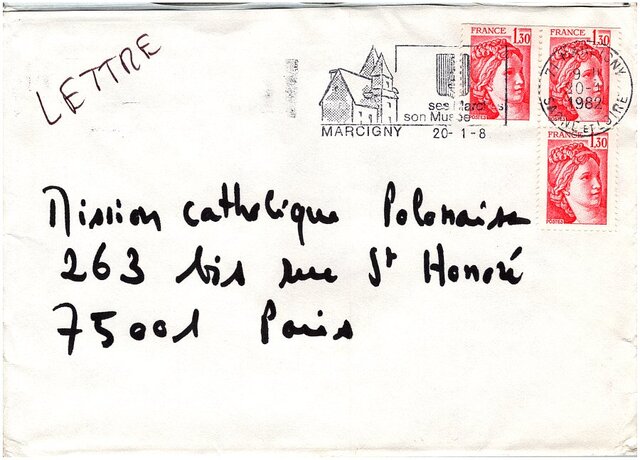 LETTRE
FRANCE 1,30
FRANCE 1,30
ses Marchés
son Musée
MARCIGNY 20-1-8
MARCIGNY
20-1
1982
SAONE ET LOIRE
POSTES
FRANCE 1,30
POSTES
Mission catholique Polonaise
263 bis rue St Honoré
75001 Paris